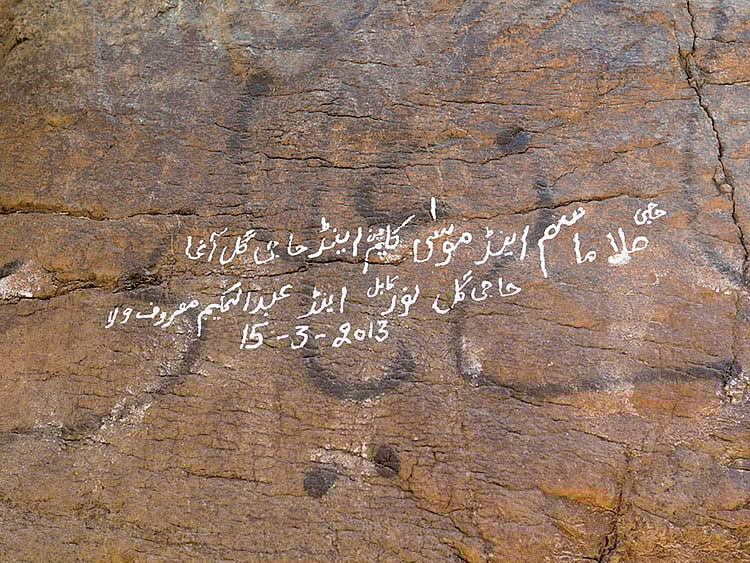 حاجی ملا ماسم اینڈ موسیٰ کلیم اینڈ حاجی گل آغا
حاجی گل نور کابل اینڈ عبدالحکیم معروف ولا
15-3-2013